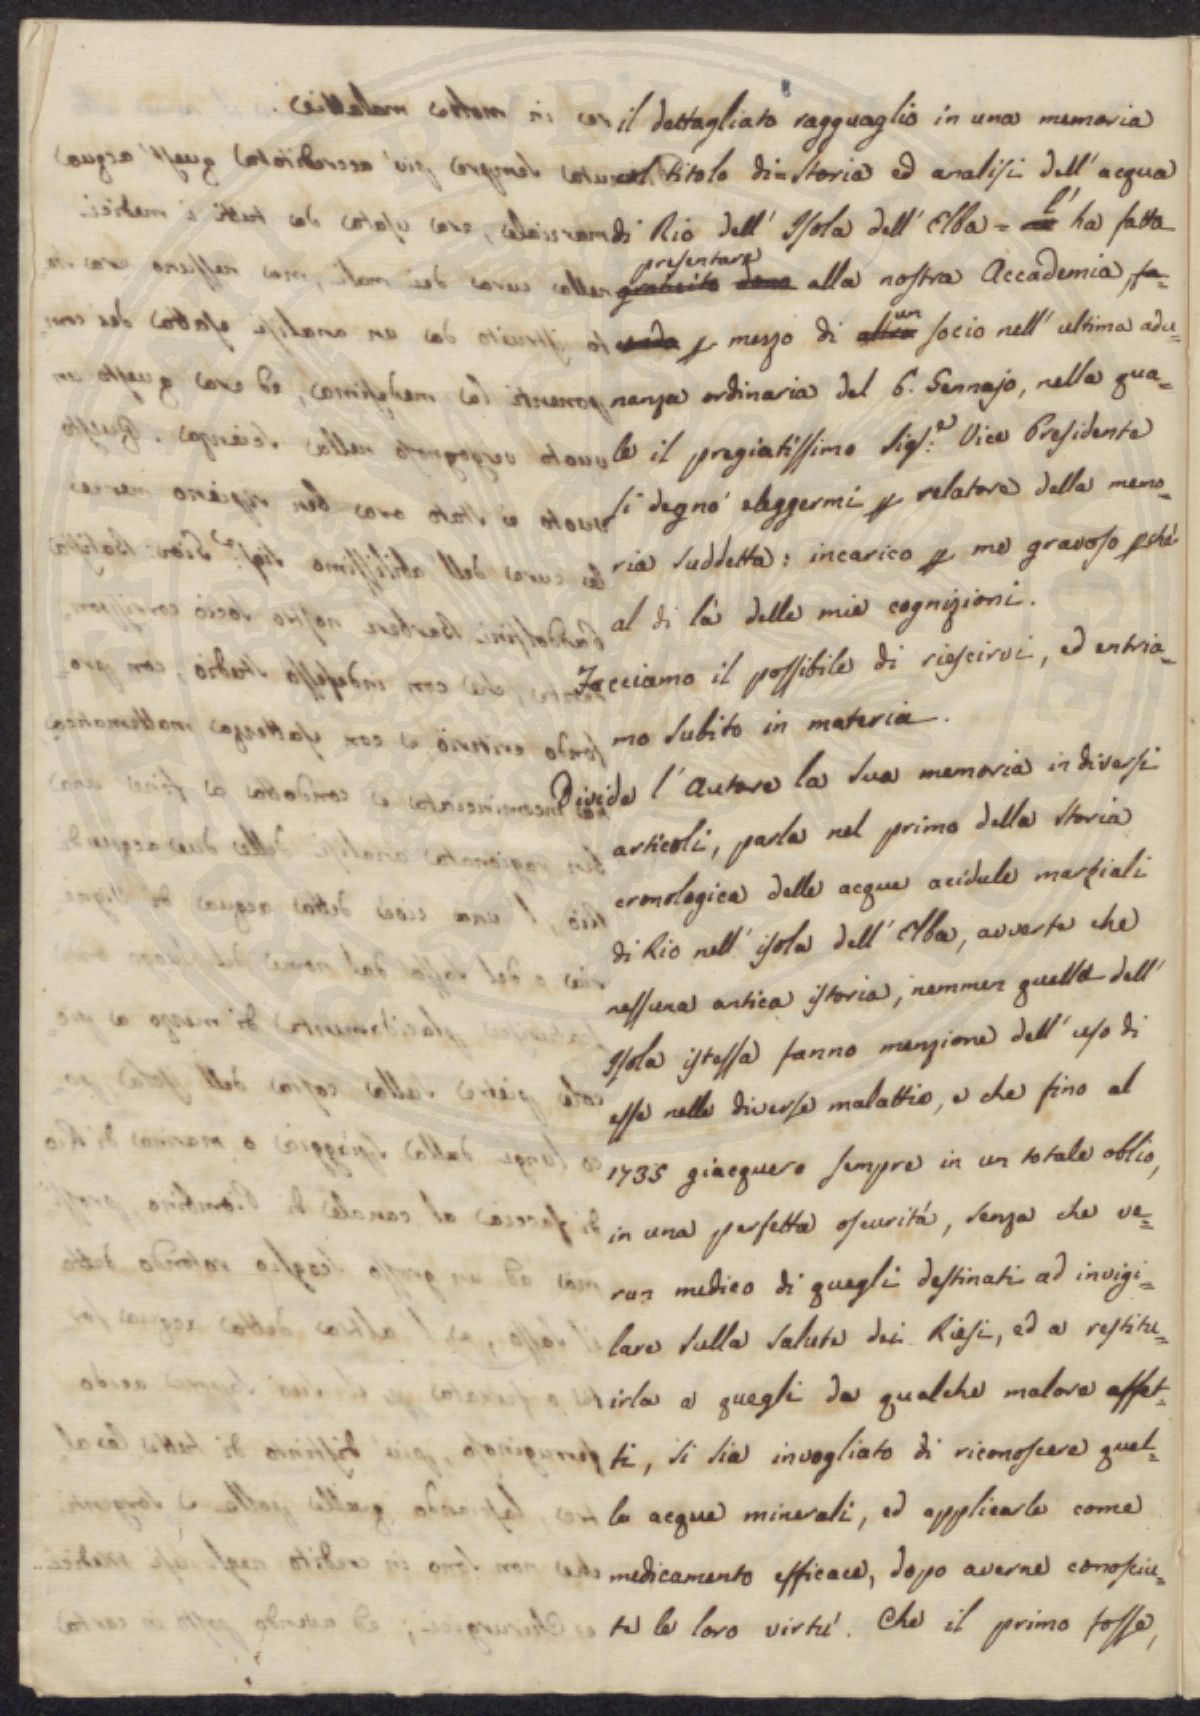 il dettagliato ragguaglio in una memoria
col titolo di = Storia ed analisi dell' acqua
di Rio dell' Isola dell' Elba = l' ha fatta
presentare alla nostra Accademia
p mezzo di un socio nell' ultima adu=
nanza ordinaria del 6. Gennajo, nella qua=
le il pregiatissimo Sig.e Vice Presidente
si degnò eleggermi p relatore della memo=
ria suddetta: incarico p me gravoso pchè
al di là delle mie cognizioni.
Facciamo il possibile di riescirvi, ed entria=
mo subito in materia.
Divide l' Autore la sua memoria in diversi
articoli, parla nel primo della storia
cronologica delle acque acidule marziali
di Rio nell' isola dell' Elba, avverte che
nessuna antica istoria, nemmen quella dell'
Isola istessa fanno menzione dell' uso di
esse nelle diverse malattie, e che fino al
1735 giacquero sempre in un totale oblio,
in una perfetta oscurità, senza che ve=
run medico di quegli destinati ad invigi=
lare sulla salute dei Riesi, ed a restitu=
irla a quegli da qualche malore affet=
ti, si sia invogliato di riconoscere quel=
le acque minerali, ed applicarle come
medicamento efficace, dopo averne conosciu=
te le loro virtù. Che il primo fosse,